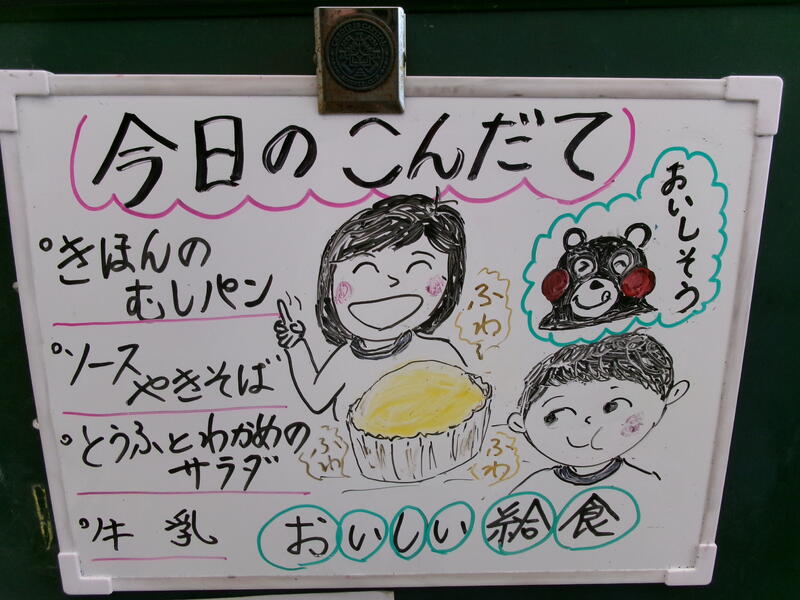 今日のこんだて
°きほんの
むしパン
°ソース
やきそば
°とうふとわかめの
サラダ
°牛乳
ふわ〜
ふわ
ふわ
おいしそう
おいしい給食